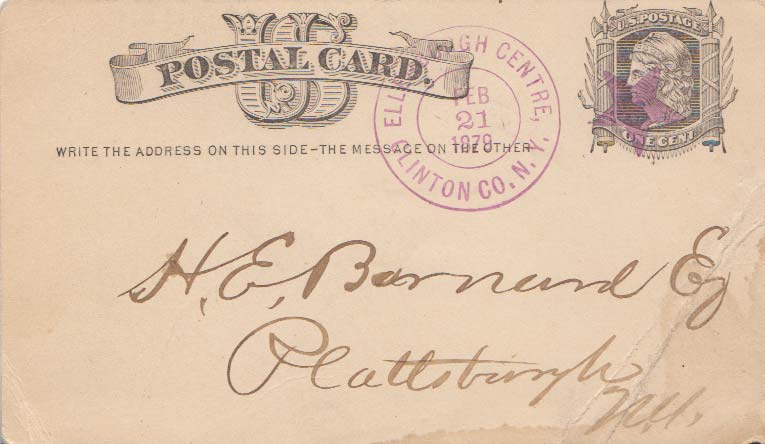 US
POSTAL CARD.
U.S. POSTAGE
ONE CENT
ELLENBURGH CENTRE,
FEB
21
1879
CLINTON CO. N. Y.
WRITE THE ADDRESS ON THIS SIDE–THE MESSAGE ON THE OTHER
H. E. Barnard Eq
Plattsburgh
N.Y.